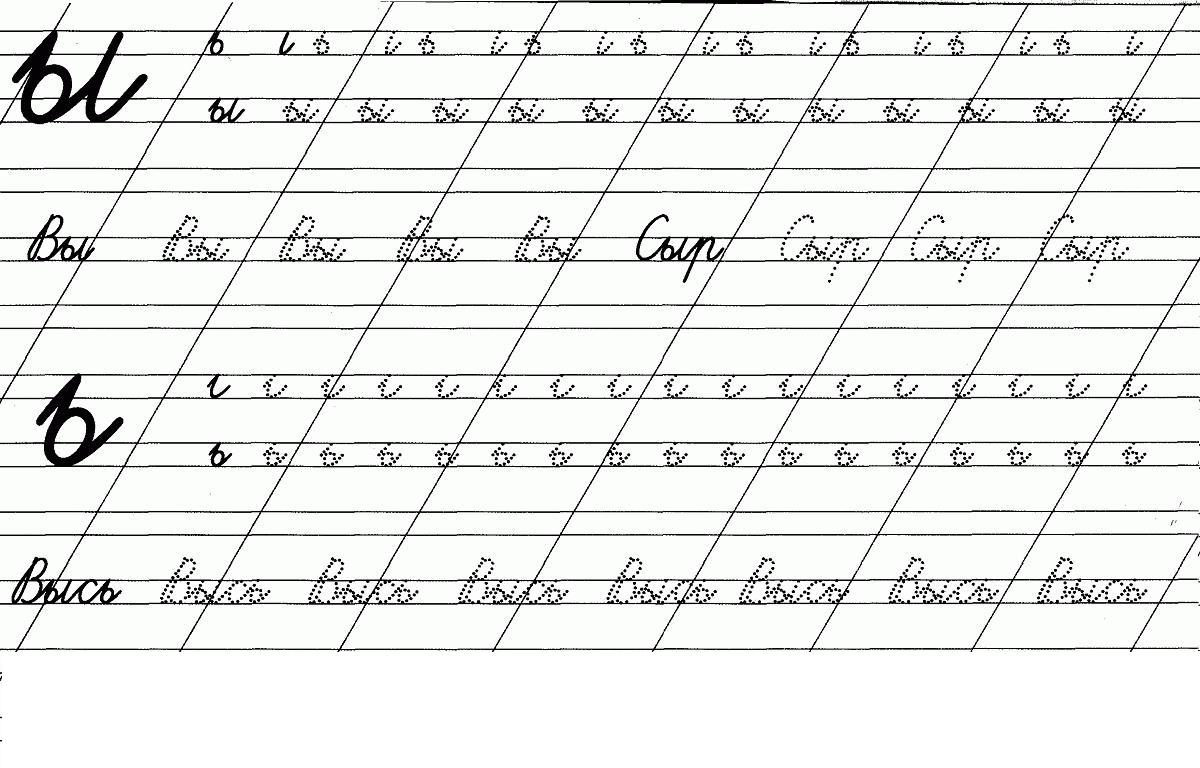 ы ь ι ь ι ь ι ь ι ь ι ь ι ь ι ь ι ь ι
ы ы ы ы ы ы ы ы ы ы ы ы ы
Вы Вы Вы Вы Вы Сыр Сыр Сыр Сыр
ь ι ι ι ι ι ι ι ι ι ι ι ι ι ι ι ι ι
ь ь ь ь ь ь ь ь ь ь ь ь ь ь ь ь ь
Высь Высь Высь Высь Высь Высь Высь Высь